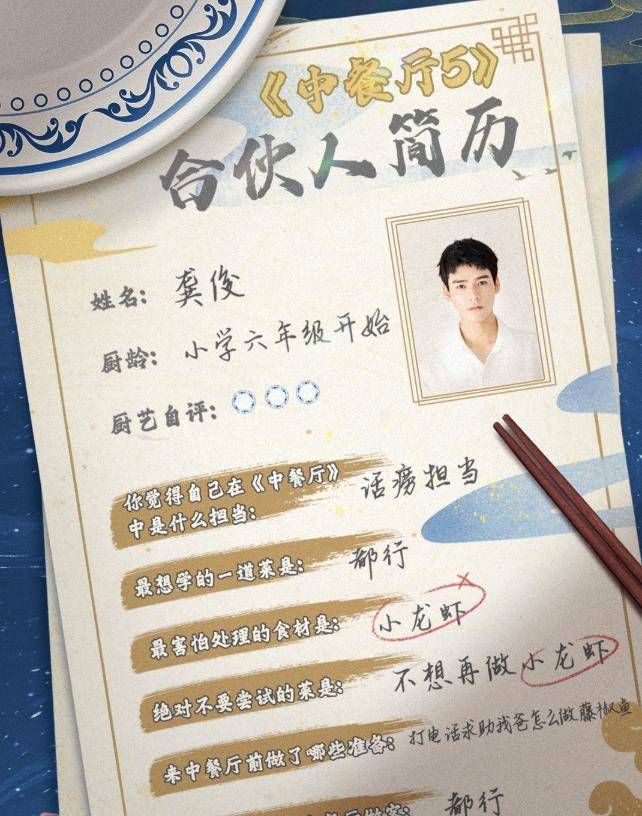 《中餐厅5》
合伙人简历
姓名： 龚俊
厨龄： 小学六年级开始
厨艺自评：
你觉得自己在《中餐厅》
中是什么担当： 话痨担当
最想学的一道菜是： 都行
最害怕处理的食材是： 小龙虾
绝对不要尝试的菜是： 不想再做小龙虾
来中餐厅前做了哪些准备： 打电话求助我爸怎么做藤椒鱼
都行